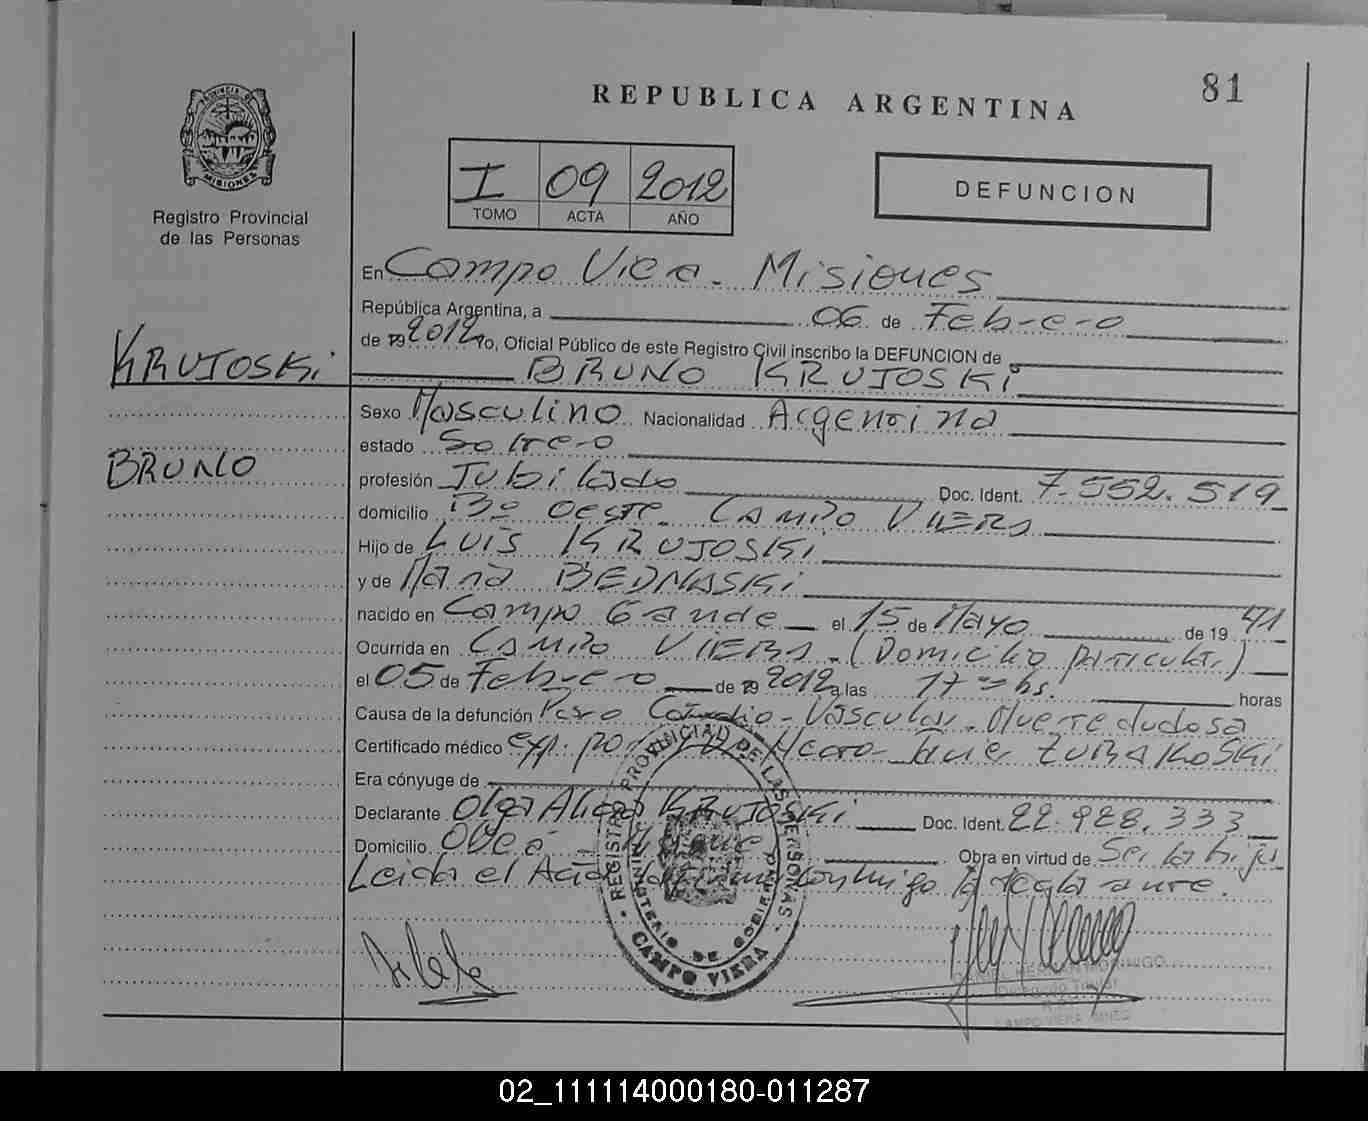 81
REPUBLICA ARGENTINA
PROVINCIA DE
MISIONES
Registro Provincial
de las Personas
I 09 2012
TOMO ACTA AÑO
DEFUNCION
En Campo Viera - Misiones
República Argentina, a 06 de Febrero
de 19 2012 ro, Oficial Público de este Registro Civil inscribo la DEFUNCION de
KRUJOSKI
BRUNO KRUJOSKI
Sexo Masculino Nacionalidad Argentina
estado Soltero
BRUNO
profesión Jubilado Doc. Ident. 7.552.519
domicilio Bº Oeste - Campo Viera
Hijo de LUIS KRUJOSKI
y de Maria BEDNASKI
nacido en Campo Grande el 15 de Mayo de 19 41
Ocurrida en Campo Viera - (Domicilio particular)
el 05 de Febrero de 19 2012 a las 17 hs. horas
Causa de la defunción Paro Cardio-Vascular - Muerte dudosa
Certificado médico exp. por ZURAKOSKI
Era cónyuge de
Declarante Olga Alicia KRUJOSKI Doc. Ident. 22.928.333
Domicilio Obera Obra en virtud de Ser la hija
Leida el Acta conmigo la declarante.
REGISTRO PROVINCIAL DE LAS PERSONAS
MINISTERIO DE GOBIERNO
CAMPO VIERA
CAMPO VIERA
02_111114000180-011287